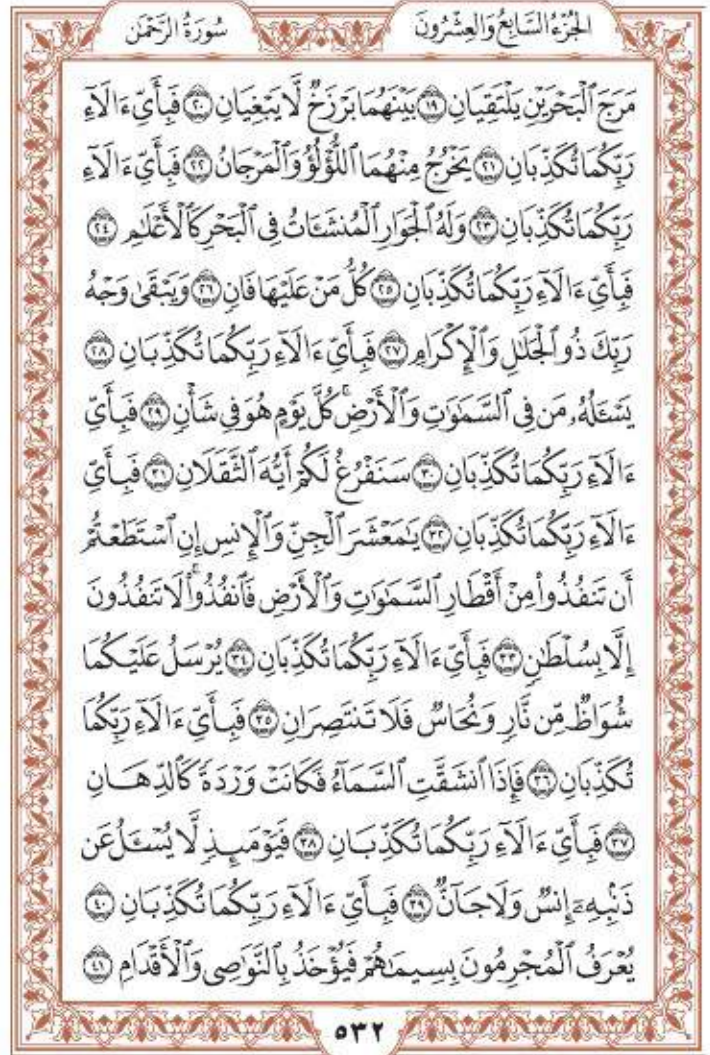 الجُزْءُ السَّابِعُ وَالعِشْرُونَ سُورَةُ الرَّحْمَٰن
مَرَجَ ٱلْبَحْرَيْنِ يَلْتَقِيَانِ ١٩ بَيْنَهُمَا بَرْزَخٌ لَّا يَبْغِيَانِ ٢٠ فَبِأَيِّ ءَالَآءِ
رَبِّكُمَا تُكَذِّبَانِ ٢١ يَخْرُجُ مِنْهُمَا ٱللُّؤْلُؤُ وَٱلْمَرْجَانُ ٢٢ فَبِأَيِّ ءَالَآءِ
رَبِّكُمَا تُكَذِّبَانِ ٢٣ وَلَهُ ٱلْجَوَارِ ٱلْمُنشَـَٔاتُ فِى ٱلْبَحْرِ كَٱلْأَعْلَٰمِ ٢٤
فَبِأَيِّ ءَالَآءِ رَبِّكُمَا تُكَذِّبَانِ ٢٥ كُلُّ مَنْ عَلَيْهَا فَانٍ ٢٦ وَيَبْقَىٰ وَجْهُ
رَبِّكَ ذُو ٱلْجَلَٰلِ وَٱلْإِكْرَامِ ٢٧ فَبِأَيِّ ءَالَآءِ رَبِّكُمَا تُكَذِّبَانِ ٢٨
يَسْـَٔلُهُۥ مَن فِى ٱلسَّمَٰوَٰتِ وَٱلْأَرْضِۚ كُلَّ يَوْمٍ هُوَ فِى شَأْنٍ ٢٩ فَبِأَيِّ
ءَالَآءِ رَبِّكُمَا تُكَذِّبَانِ ٣٠ سَنَفْرُغُ لَكُمْ أَيُّهَ ٱلثَّقَلَانِ ٣١ فَبِأَيِّ
ءَالَآءِ رَبِّكُمَا تُكَذِّبَانِ ٣٢ يَٰمَعْشَرَ ٱلْجِنِّ وَٱلْإِنسِ إِنِ ٱسْتَطَعْتُمْ
أَن تَنفُذُوا۟ مِنْ أَقْطَارِ ٱلسَّمَٰوَٰتِ وَٱلْأَرْضِ فَٱنفُذُوا۟ۚ لَا تَنفُذُونَ
إِلَّا بِسُلْطَٰنٍ ٣٣ فَبِأَيِّ ءَالَآءِ رَبِّكُمَا تُكَذِّبَانِ ٣٤ يُرْسَلُ عَلَيْكُمَا
شُوَاظٌ مِّن نَّارٍ وَنُحَاسٌ فَلَا تَنتَصِرَانِ ٣٥ فَبِأَيِّ ءَالَآءِ رَبِّكُمَا
تُكَذِّبَانِ ٣٦ فَإِذَا ٱنشَقَّتِ ٱلسَّمَآءُ فَكَانَتْ وَرْدَةً كَٱلدِّهَانِ
٣٧ فَبِأَيِّ ءَالَآءِ رَبِّكُمَا تُكَذِّبَانِ ٣٨ فَيَوْمَئِذٍ لَّا يُسْـَٔلُ عَن
ذَنۢبِهِۦٓ إِنسٌ وَلَا جَآنٌّ ٣٩ فَبِأَيِّ ءَالَآءِ رَبِّكُمَا تُكَذِّبَانِ ٤٠
يُعْرَفُ ٱلْمُجْرِمُونَ بِسِيمَٰهُمْ فَيُؤْخَذُ بِٱلنَّوَٰصِى وَٱلْأَقْدَامِ ٤١
٥٣٢